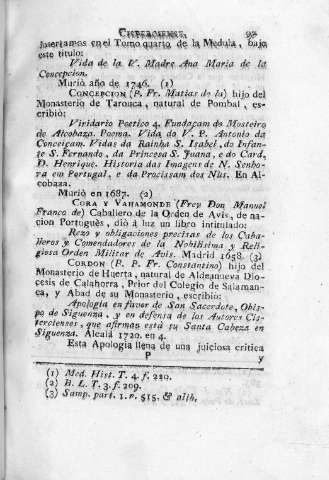 CISTERCIENSE. 97
Insertamos en el Tomo quarto de la Medula, bajo
este titulo:
Vida de la V. Madre Ana Maria de la
Concepcion.
Murió año de 1746. (1)
CONCEPCION (P. Fr. Matias de la) hijo del
Monasterio de Tarouca, natural de Pombal, es-
cribió:
Viridario Poetico 4. Fundaçam do Mosteiro
de Alcobaza. Poema. Vida do V. P. Antonio da
Conceiçam. Vidas da Rainha S. Isabel, do Infan-
te S. Fernando, da Princesa S. Juana, e do Card.
D. Henrique. Historia das Imagens de N. Senho-
ra em Portugal, e da Procissam dos Nùs. En Al-
cobaza.
Murió en 1687. (2)
CORA Y VAHAMONDE (Frey Don Manuel
Franco de) Caballero de la Orden de Avis, de na-
cion Portugués, dió á luz un libro intitulado:
Rezo y obligaciones precisas de los Caba-
lleros y Comendadores de la Nobilisima y Reli-
giosa Orden Militar de Avis. Madrid 1658. (3)
CORDON (P. P. Fr. Constantino) hijo del
Monasterio de Huerta, natural de Aldeanueva Dio-
cesis de Calahorra, Prior del Colegio de Salaman-
ca, y Abad de su Monasterio, escribio:
Apologia en favor de San Sacerdote, Obis-
po de Siguenza, y en defensa de los Autores Cis-
tercienses, que afirman está su Santa Cabeza en
Siguenza. Alcalá 1720. en 4.
Esta Apologia llena de una juiciosa critica
P y
(1) Med. Hist. T. 4. f. 220.
(2) B. L. T. 3. f. 209.
(3) Samp. part. 1. n. 515. & alib.